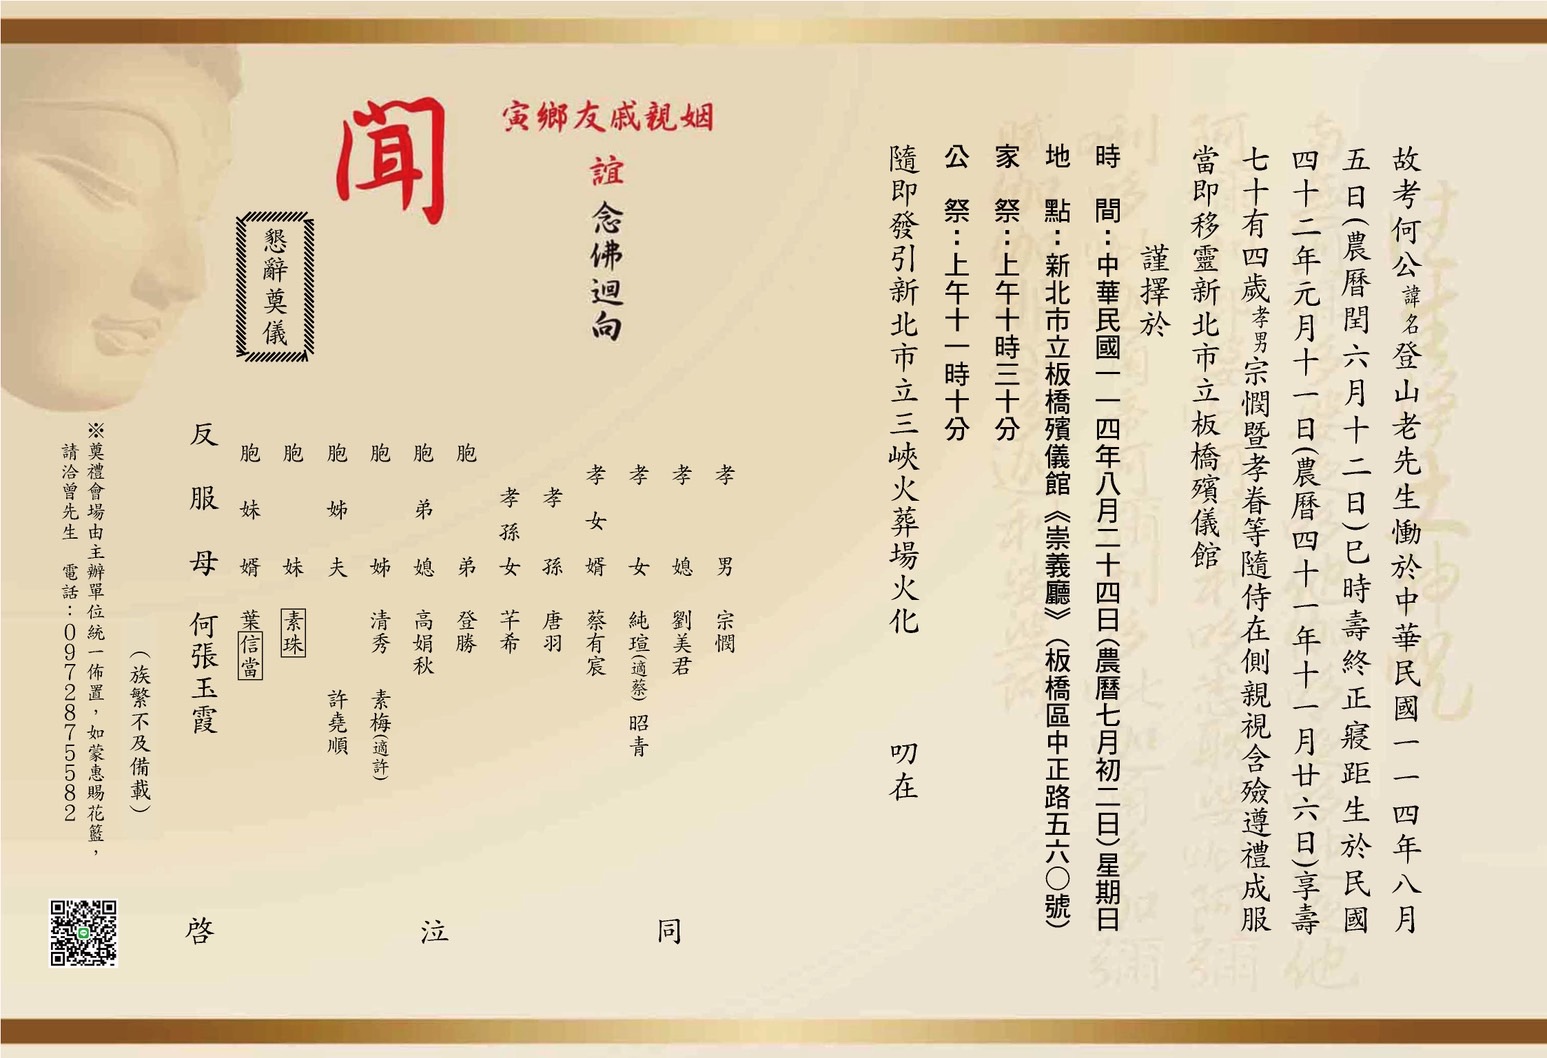 故考何公諱名登山老先生慟於中華民國一一四年八月
五日(農曆閏六月十二日)巳時壽終正寢距生於民國
四十二年元月十一日(農曆四十一年十一月廿六日)享壽
七十有四歲孝男宗憫暨孝眷等隨侍在側親視含殮遵禮成服
當即移靈新北市立板橋殯儀館
謹擇於
時 間：中華民國一一四年八月二十四日(農曆七月初二日)星期日
地 點：新北市立板橋殯儀館《崇義廳》(板橋區中正路五六○號)
家 祭：上午十時三十分
公 祭：上午十一時十分
隨即發引新北市立三峽火葬場火化 叨在
姻親戚友鄉寅
誼念佛迴向
聞
懇辭奠儀
孝男 宗憫
孝媳 劉美君
孝女 純瑄(適蔡) 昭青
孝女婿 蔡有宸
孝孫 唐羽
孝孫女 芊希
胞弟 登勝
胞弟媳 高娟秋
胞姊 清秀 素梅(適許)
胞姊夫 許堯順
胞妹 素珠
胞妹婿 葉信當
反服母 何張玉霞
同泣啓
(族繁不及備載)
※奠禮會場由主辦單位統一佈置，如蒙惠賜花籃，
請洽曾先生 電話：0972875582